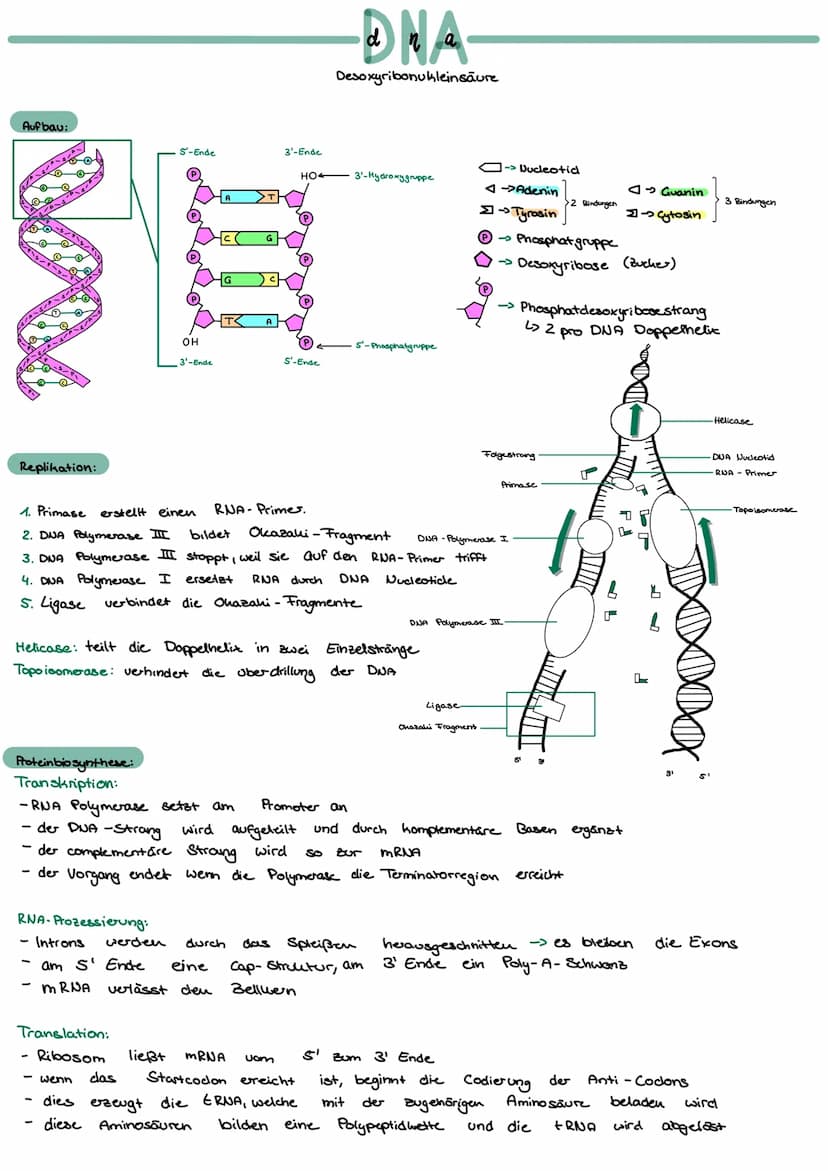 DNA
d n a
Desoxyribonukleinsäure
Aufbau:
5'-Ende 3'-Ende
HO 3'-Hydroxygruppe
P
A T
P P
C G
P P
G C
P P
T A
OH P 5'-Phosphatgruppe
3'-Ende 5'-Ende
-> Nucleotid
-> Adenin
-> Tyrosin
2 Bindungen
-> Guanin
-> Cytosin
3 Bindungen
P -> Phosphatgruppe
-> Desoxyribose (Zucker)
P
-> Phosphatdesoxyribosestrang
↳ 2 pro DNA Doppelhelix
Helicase
Folgestrang
DNA Nucleotid
RNA - Primer
Primase
Topoisomerase
DNA-Polymerase I
DNA Polymerase III
Ligase
Okazaki Fragment
5' 3'
3' 5'
Replikation:
1. Primase erstellt einen RNA-Primer.
2. DNA Polymerase III bildet Okazaki-Fragment
3. DNA Polymerase III stoppt, weil sie auf den RNA-Primer trifft
4. DNA Polymerase I ersetzt RNA durch DNA Nucleotide
5. Ligase verbindet die Okazaki-Fragmente
Helicase: teilt die Doppelhelix in zwei Einzelstränge
Topoisomerase: verhindert die überdrillung der DNA
Proteinbiosynthese:
Transkription:
- RNA Polymerase setzt am Promoter an
- der DNA-Strang wird aufgeteilt und durch komplementäre Basen ergänzt
- der complementäre Strang wird so zur mRNA
- der Vorgang endet wenn die Polymerase die Terminatorregion erreicht
RNA-Prozessierung:
- Introns werden durch das Spleißen herausgeschnitten -> es bleiben die Exons
- am 5' Ende eine Cap-Struktur, am 3' Ende ein Poly-A-Schwanz
- mRNA verlässt den Zellkern
Translation:
- Ribosom ließt mRNA vom 5' zum 3' Ende
- wenn das Startcodon erreicht ist, beginnt die Codierung der Anti-Codons
- dies erzeugt die tRNA, welche mit der zugehörigen Aminosäure beladen wird
- diese Aminosäuren bilden eine Polypeptidkette und die tRNA wird abgelöst